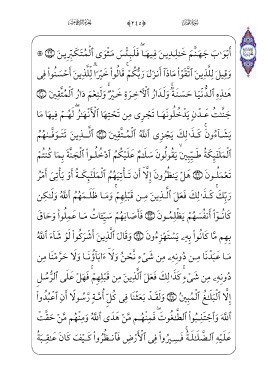 أَبْوَٰبَ جَهَنَّمَ خَٰلِدِينَ فِيهَا ۖ فَلَبِئْسَ مَثْوَى ٱلْمُتَكَبِّرِينَ ۞
وَقِيلَ لِلَّذِينَ ٱتَّقَوْا۟ مَاذَآ أَنزَلَ رَبُّكُمْ ۚ قَالُوا۟ خَيْرًا ۗ لِّلَّذِينَ أَحْسَنُوا۟ فِى
هَٰذِهِ ٱلدُّنْيَا حَسَنَةٌ ۚ وَلَدَارُ ٱلْءَاخِرَةِ خَيْرٌ ۚ وَلَنِعْمَ دَارُ ٱلْمُتَّقِينَ
جَنَّٰتُ عَدْنٍ يَدْخُلُونَهَا تَجْرِى مِن تَحْتِهَا ٱلْأَنْهَٰرُ ۖ لَهُمْ فِيهَا مَا
يَشَآءُونَ ۚ كَذَٰلِكَ يَجْزِى ٱللَّهُ ٱلْمُتَّقِينَ ٱلَّذِينَ تَتَوَفَّىٰهُمُ
ٱلْمَلَٰٓئِكَةُ طَيِّبِينَ ۙ يَقُولُونَ سَلَٰمٌ عَلَيْكُمُ ٱدْخُلُوا۟ ٱلْجَنَّةَ بِمَا كُنتُمْ
تَعْمَلُونَ هَلْ يَنظُرُونَ إِلَّآ أَن تَأْتِيَهُمُ ٱلْمَلَٰٓئِكَةُ أَوْ يَأْتِىَ أَمْرُ
رَبِّكَ ۚ كَذَٰلِكَ فَعَلَ ٱلَّذِينَ مِن قَبْلِهِمْ ۚ وَمَا ظَلَمَهُمُ ٱللَّهُ وَلَٰكِن
كَانُوٓا۟ أَنفُسَهُمْ يَظْلِمُونَ فَأَصَابَهُمْ سَيِّـَٔاتُ مَا عَمِلُوا۟ وَحَاقَ
بِهِم مَّا كَانُوا۟ بِهِۦ يَسْتَهْزِءُونَ وَقَالَ ٱلَّذِينَ أَشْرَكُوا۟ لَوْ شَآءَ ٱللَّهُ
مَا عَبَدْنَا مِن دُونِهِۦ مِن شَىْءٍ نَّحْنُ وَلَآ ءَابَآؤُنَا وَلَا حَرَّمْنَا مِن
دُونِهِۦ مِن شَىْءٍ ۚ كَذَٰلِكَ فَعَلَ ٱلَّذِينَ مِن قَبْلِهِمْ ۚ فَهَلْ عَلَى ٱلرُّسُلِ
إِلَّا ٱلْبَلَٰغُ ٱلْمُبِينُ وَلَقَدْ بَعَثْنَا فِى كُلِّ أُمَّةٍ رَّسُولًا أَنِ ٱعْبُدُوا۟
ٱللَّهَ وَٱجْتَنِبُوا۟ ٱلطَّٰغُوتَ ۖ فَمِنْهُم مَّنْ هَدَى ٱللَّهُ وَمِنْهُم مَّنْ حَقَّتْ
عَلَيْهِ ٱلضَّلَٰلَةُ ۚ فَسِيرُوا۟ فِى ٱلْأَرْضِ فَٱنظُرُوا۟ كَيْفَ كَانَ عَٰقِبَةُ